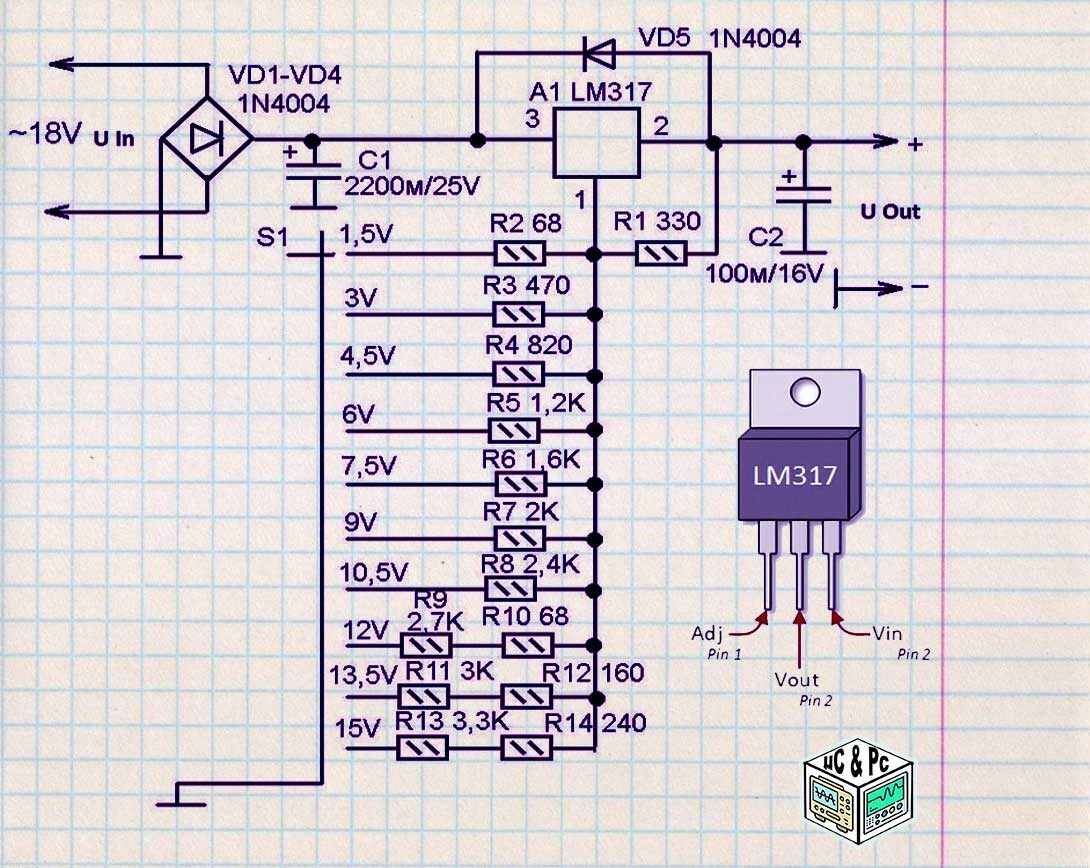 VD5 1N4004
VD1-VD4
1N4004
A1 LM317
3
2
~18V U In
+
C1
2200м/25V
+
+
1
U Out
S1
1,5V
R2 68
R1 330
C2
100м/16V
3V
R3 470
−
4,5V
R4 820
6V
R5 1,2K
7,5V
R6 1,6K
LM317
9V
R7 2K
10,5V
R8 2,4K
R9
2,7K
12V
R10 68
Adj
Pin 1
Vin
Pin 2
Vout
Pin 2
13,5V
R11 3K
R12 160
15V
R13 3,3K
R14 240
µC & Pc